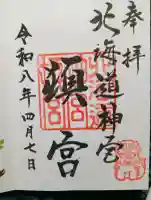 奉拝
北海道神宮
頓宮
令和八年四月七日